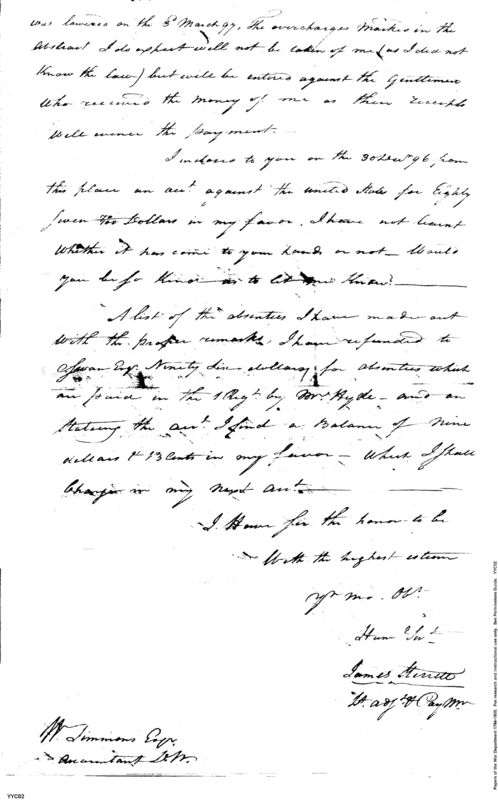 was lowered on the 3d March 97, the overcharges marked in the
Abstract I do expect will not be taken of me (as I did not
Know the law) but will be entered against the Gentlemen
who received the money of me as their receipts
will evince the payment.—
I inclosed to you on the 30 Decr. 96 from
this place an acct. against the united States for Eighty
Seven Dollars in my favor. I have not learnt
whether it has come to your hands or not— Would
you be so kind as to let me know?—
A list of the absentees I have made out
with the proper remarks, I have refunded to
Swan Esqr. Ninety Six dollars, for absentees which
are paid in the 1 Regt. by Mr. Hyde— and on
stating the acct. I find a Balance of nine
dollars & 13 Cents in my favor— which I shall
Charge in my next acct.—
I Have Sir the honor to be
With the highest esteem
Yr. mo. Obt.
Hum. Servt.
James Sterrett
Lt. adjt. & Pay Mr.
W. Simmons Esqr.
Accountant D.W.
YYC02
Papers of the War Department 1784-1800. For research and instructional use only. See Permissions Guide. YYC02